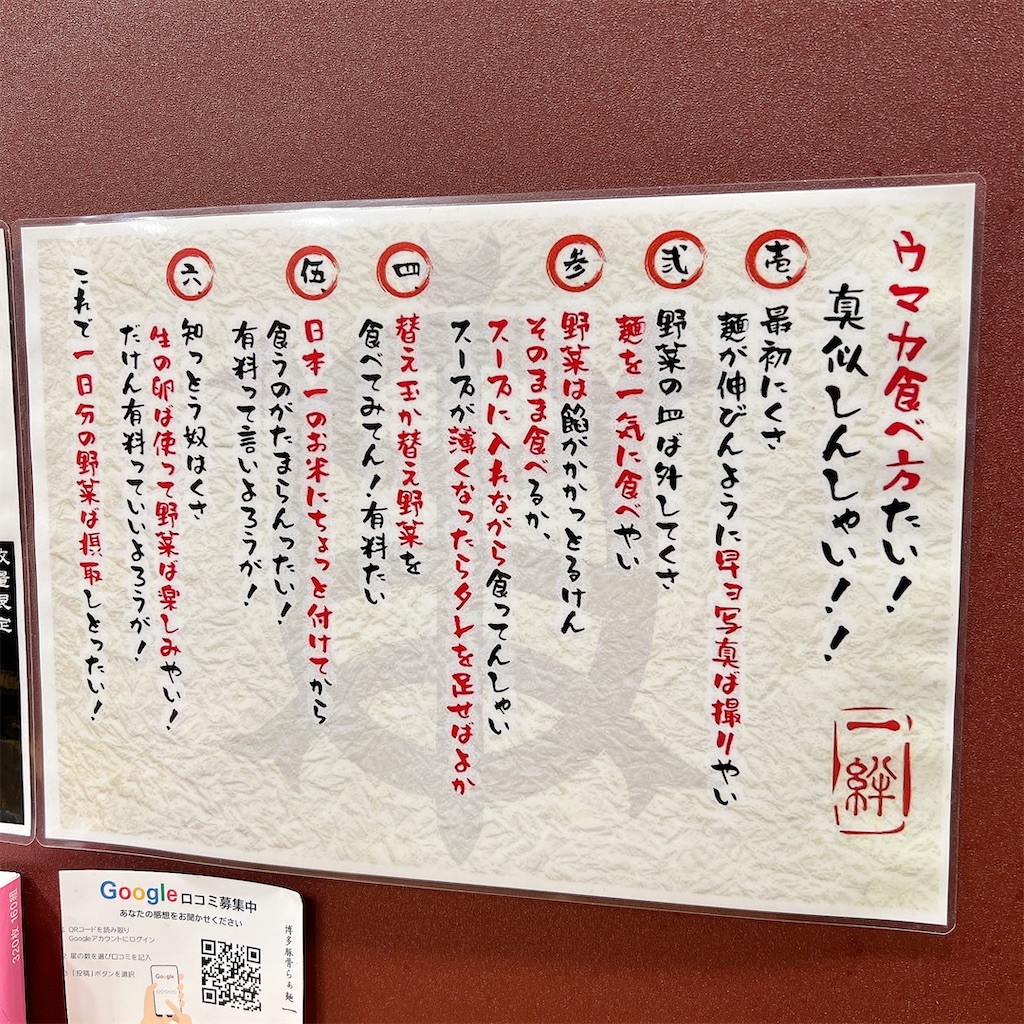 ウマカ食べ方たい！
真似しんしゃい！！
一絆
壱、
最初にくさ
麺が伸びんように早ヨ写真ば撮りやい
弐、
野菜の皿ば外してくさ
麺を一気に食べやい
参、
野菜は餡がかかっとるけん
そのまま食べるか、
スープに入れながら食ってんしゃい
スープが薄くなったらタレを足せばよか
四、
替え玉か替え野菜を
食べてみてん！有料たい
伍、
日本一のお米にちょっと付けてから
食うのがたまらんったい！
有料って言いよろうが！
六、
知っとう奴はくさ
生の卵は使って野菜ば楽しみやい！
だけん有料っていいよろうが！
これで一日分の野菜ば摂取しとったい！
数量限定
320枚 160組
Google口コミ募集中
あなたの感想をお聞かせください
QRコードを読み取り
Googleアカウントにログイン
星の数を選び口コミを記入
「投稿」ボタンを選択
Google
博多豚骨らぁ麺 一